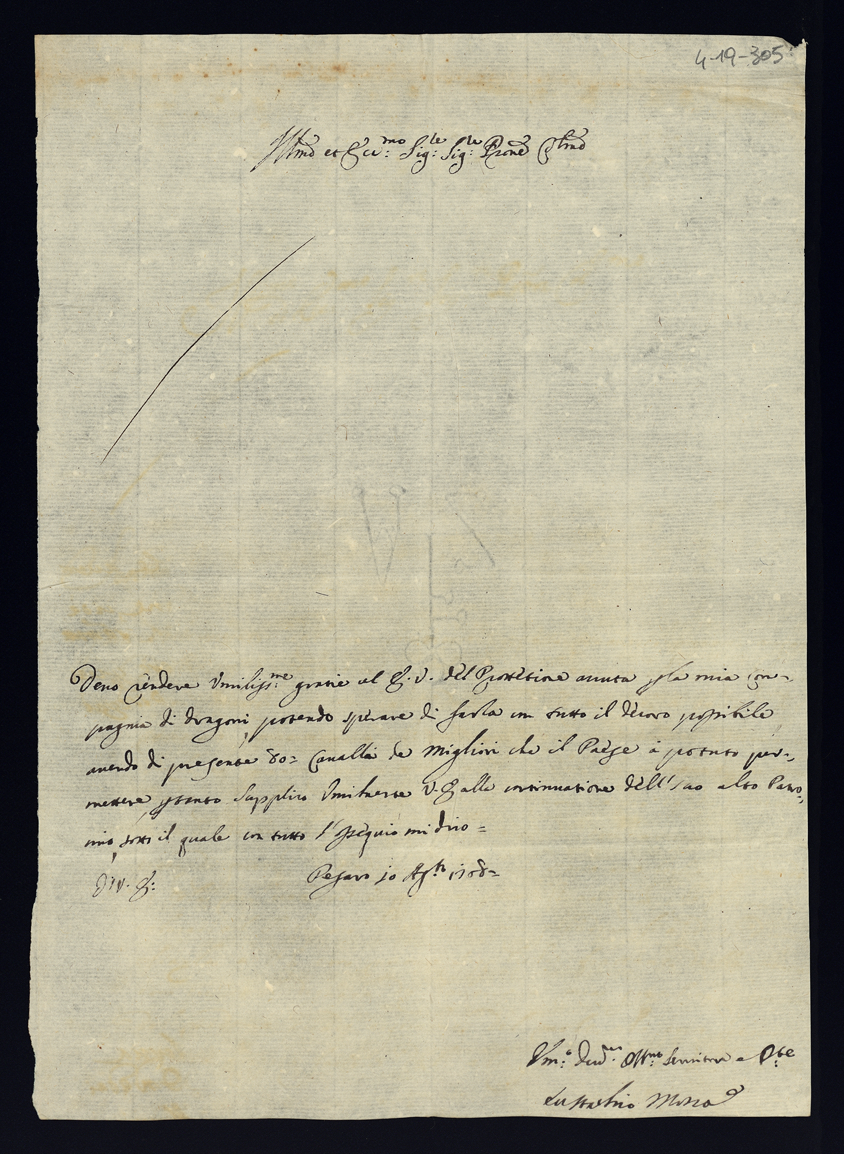 4-19-305
Illmo et Ecc:mo Sig:re Sig:re Prone Colmo
Devo rendere Umiliss:me gratie al E. V. del Protetione avuta p la mia com-
pagnia di dragoni, potendo sperare di farla con tutto il decoro possibile
avendo di presente 80= Cavalli de Migliori che il Paese à potuto per-
mettere, p tanto supplico Umilmente V. E. alla continuatione dell'suo alto Patro,
inio, sotto il quale con tutto l'ossequio mi dico=
Di V. E:
Pesaro 10 Ag:to 1708=
Um:o Dev:mo Obb:mo Servitore e
Mosca